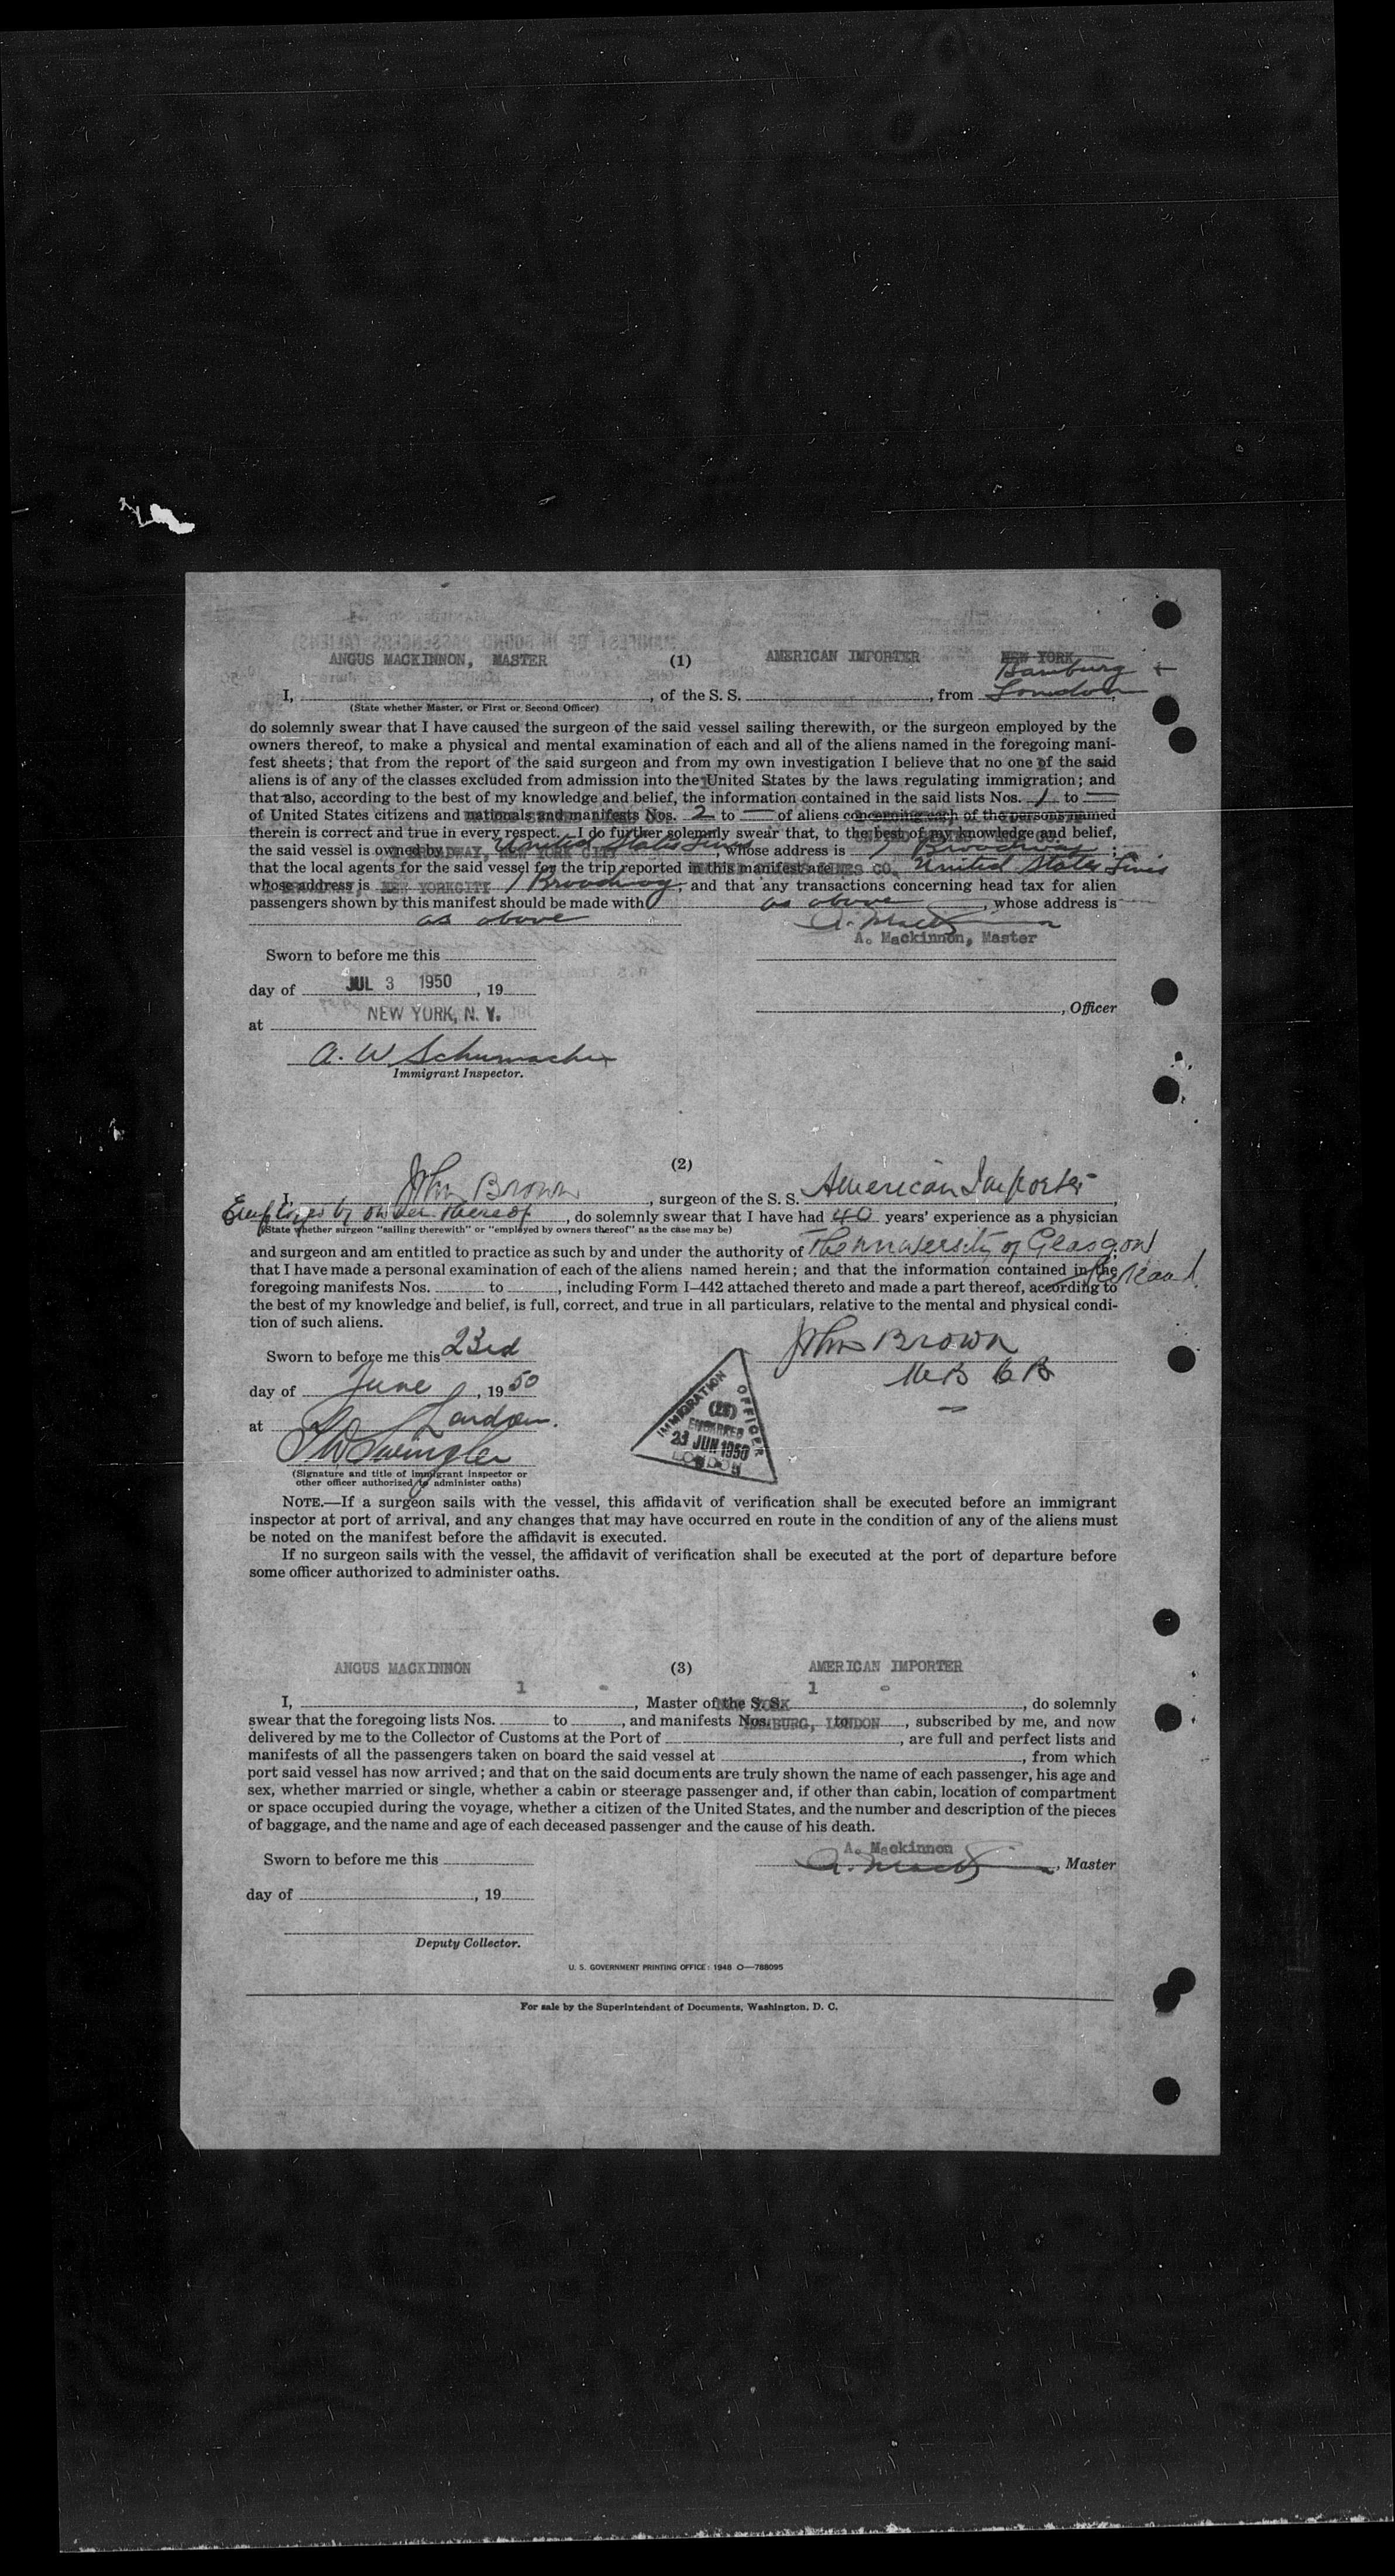 ANGUS MACKINNON, MASTER (1) AMERICAN IMPORTER NEW YORK
Hamburg +
I, , of the S. S. , from London,
(State whether Master, or First or Second Officer)
do solemnly swear that I have caused the surgeon of the said vessel sailing therewith, or the surgeon employed by the
owners thereof, to make a physical and mental examination of each and all of the aliens named in the foregoing mani-
fest sheets; that from the report of the said surgeon and from my own investigation I believe that no one of the said
aliens is of any of the classes excluded from admission into the United States by the laws regulating immigration; and
that also, according to the best of my knowledge and belief, the information contained in the said lists Nos. 1 to —
of United States citizens and nationals and manifests Nos. 2 to — of aliens concerning each of the persons named
therein is correct and true in every respect. I do further solemnly swear that, to the best of my knowledge and belief,
the said vessel is owned by BROADWAY, NEW YORK CITY United States Lines, whose address is 1 Broadway;
that the local agents for the said vessel for the trip reported in this manifest are LINES CO. United States Lines
whose address is NEW YORKCITY 1 Broadway; and that any transactions concerning head tax for alien
passengers shown by this manifest should be made with as above, whose address is
as above
A. Mackinnon, Master
Sworn to before me this
day of JUL 3 1950, 19
, Officer
at NEW YORK, N. Y.
A. W Schumacher
Immigrant Inspector.
(2)
I, John Brown, surgeon of the S. S. American Importer,
Employed by owner thereof, do solemnly swear that I have had 40 years' experience as a physician
(State whether surgeon "sailing therewith" or "employed by owners thereof" as the case may be)
and surgeon and am entitled to practice as such by and under the authority of The University of Glasgow
that I have made a personal examination of each of the aliens named herein; and that the information contained in the
Scotland.
foregoing manifests Nos. to , including Form I-442 attached thereto and made a part thereof, according to
the best of my knowledge and belief, is full, correct, and true in all particulars, relative to the mental and physical condi-
tion of such aliens.
Sworn to before me this 23rd
John Brown
day of June, 19 50
M B Ch B
at London.
(Signature and title of immigrant inspector or
other officer authorized to administer oaths)
IMMIGRATION OFFICER
(25)
EMBARKED
23 JUN 1950
LONDON
NOTE.—If a surgeon sails with the vessel, this affidavit of verification shall be executed before an immigrant
inspector at port of arrival, and any changes that may have occurred en route in the condition of any of the aliens must
be noted on the manifest before the affidavit is executed.
If no surgeon sails with the vessel, the affidavit of verification shall be executed at the port of departure before
some officer authorized to administer oaths.
ANGUS MACKINNON (3) AMERICAN IMPORTER
1 - 1 -
I, , Master of the S. S. NEW YORK , do solemnly
swear that the foregoing lists Nos. to , and manifests Nos. to HAMBURG, LONDON , subscribed by me, and now
delivered by me to the Collector of Customs at the Port of , are full and perfect lists and
manifests of all the passengers taken on board the said vessel at , from which
port said vessel has now arrived; and that on the said documents are truly shown the name of each passenger, his age and
sex, whether married or single, whether a cabin or steerage passenger and, if other than cabin, location of compartment
or space occupied during the voyage, whether a citizen of the United States, and the number and description of the pieces
of baggage, and the name and age of each deceased passenger and the cause of his death.
A. Mackinnon
Sworn to before me this , Master
day of , 19
Deputy Collector.
U. S. GOVERNMENT PRINTING OFFICE: 1948 O—788095
For sale by the Superintendent of Documents, Washington, D. C.